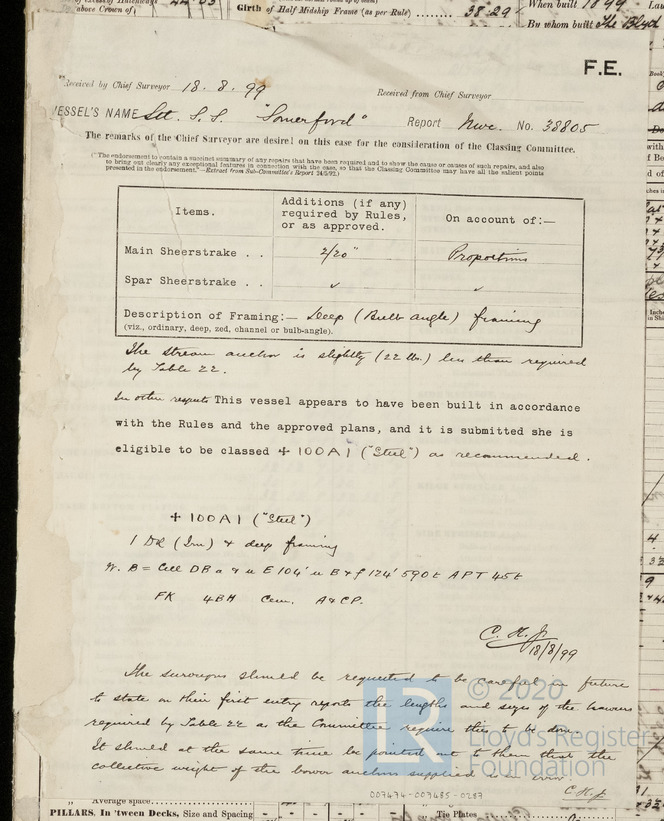 above Crown of
Girth of Half Midship Frame (as per Rule) ........ 38.29
When built 1899
By whom built The Blyth
F.E.
Received by Chief Surveyor 18.8.99
Received from Chief Surveyor
VESSEL'S NAME S.S. "Somerford" Report Nwc. No. 38805
The remarks of the Chief Surveyor are desired on this case for the consideration of the Classing Committee.
(The endorsement to contain a succinct summary of any repairs that have been required and to show the cause or causes of such repairs, and also
to bring out clearly any exceptional features in connection with the case, so that the Classing Committee may have all the salient points
presented in the endorsement."—Extract from Sub-Committee's Report 24/5/92.)
Items. Additions (if any) required by Rules, or as approved. On account of:—
Main Sheerstrake . . 2/20" Proportions
Spar Sheerstrake . . ✓ ✓
Description of Framing:— Deep (Bulb angle) framing
(viz., ordinary, deep, zed, channel or bulb-angle).
The stream anchor is slightly (22 lbs.) less than required
by Table 22.
In other respects This vessel appears to have been built in accordance
with the Rules and the approved plans, and it is submitted she is
eligible to be classed + 100A1 ("Steel") as recommended.
+ 100A1 ("Steel")
1 DK (Irn) & deep framing
W. B = Cell DB a & u E 104' u B & f 124' 590t APT 45t
FK 4BH Cem. A&CP.
18/8/99
The surveyors should be requested to be careful in future
to state in their first entry reports the lengths and sizes of the
required by Table 22 as the Committee require this to be done.
It should at the same time be pointed out to them that the
collective weight of the bower anchors supplied is
© 2020
Lloyd's Register
Foundation
007474-007485-0287
Average space
PILLARS. In 'tween Decks, Size and Spacing
Tie Plates